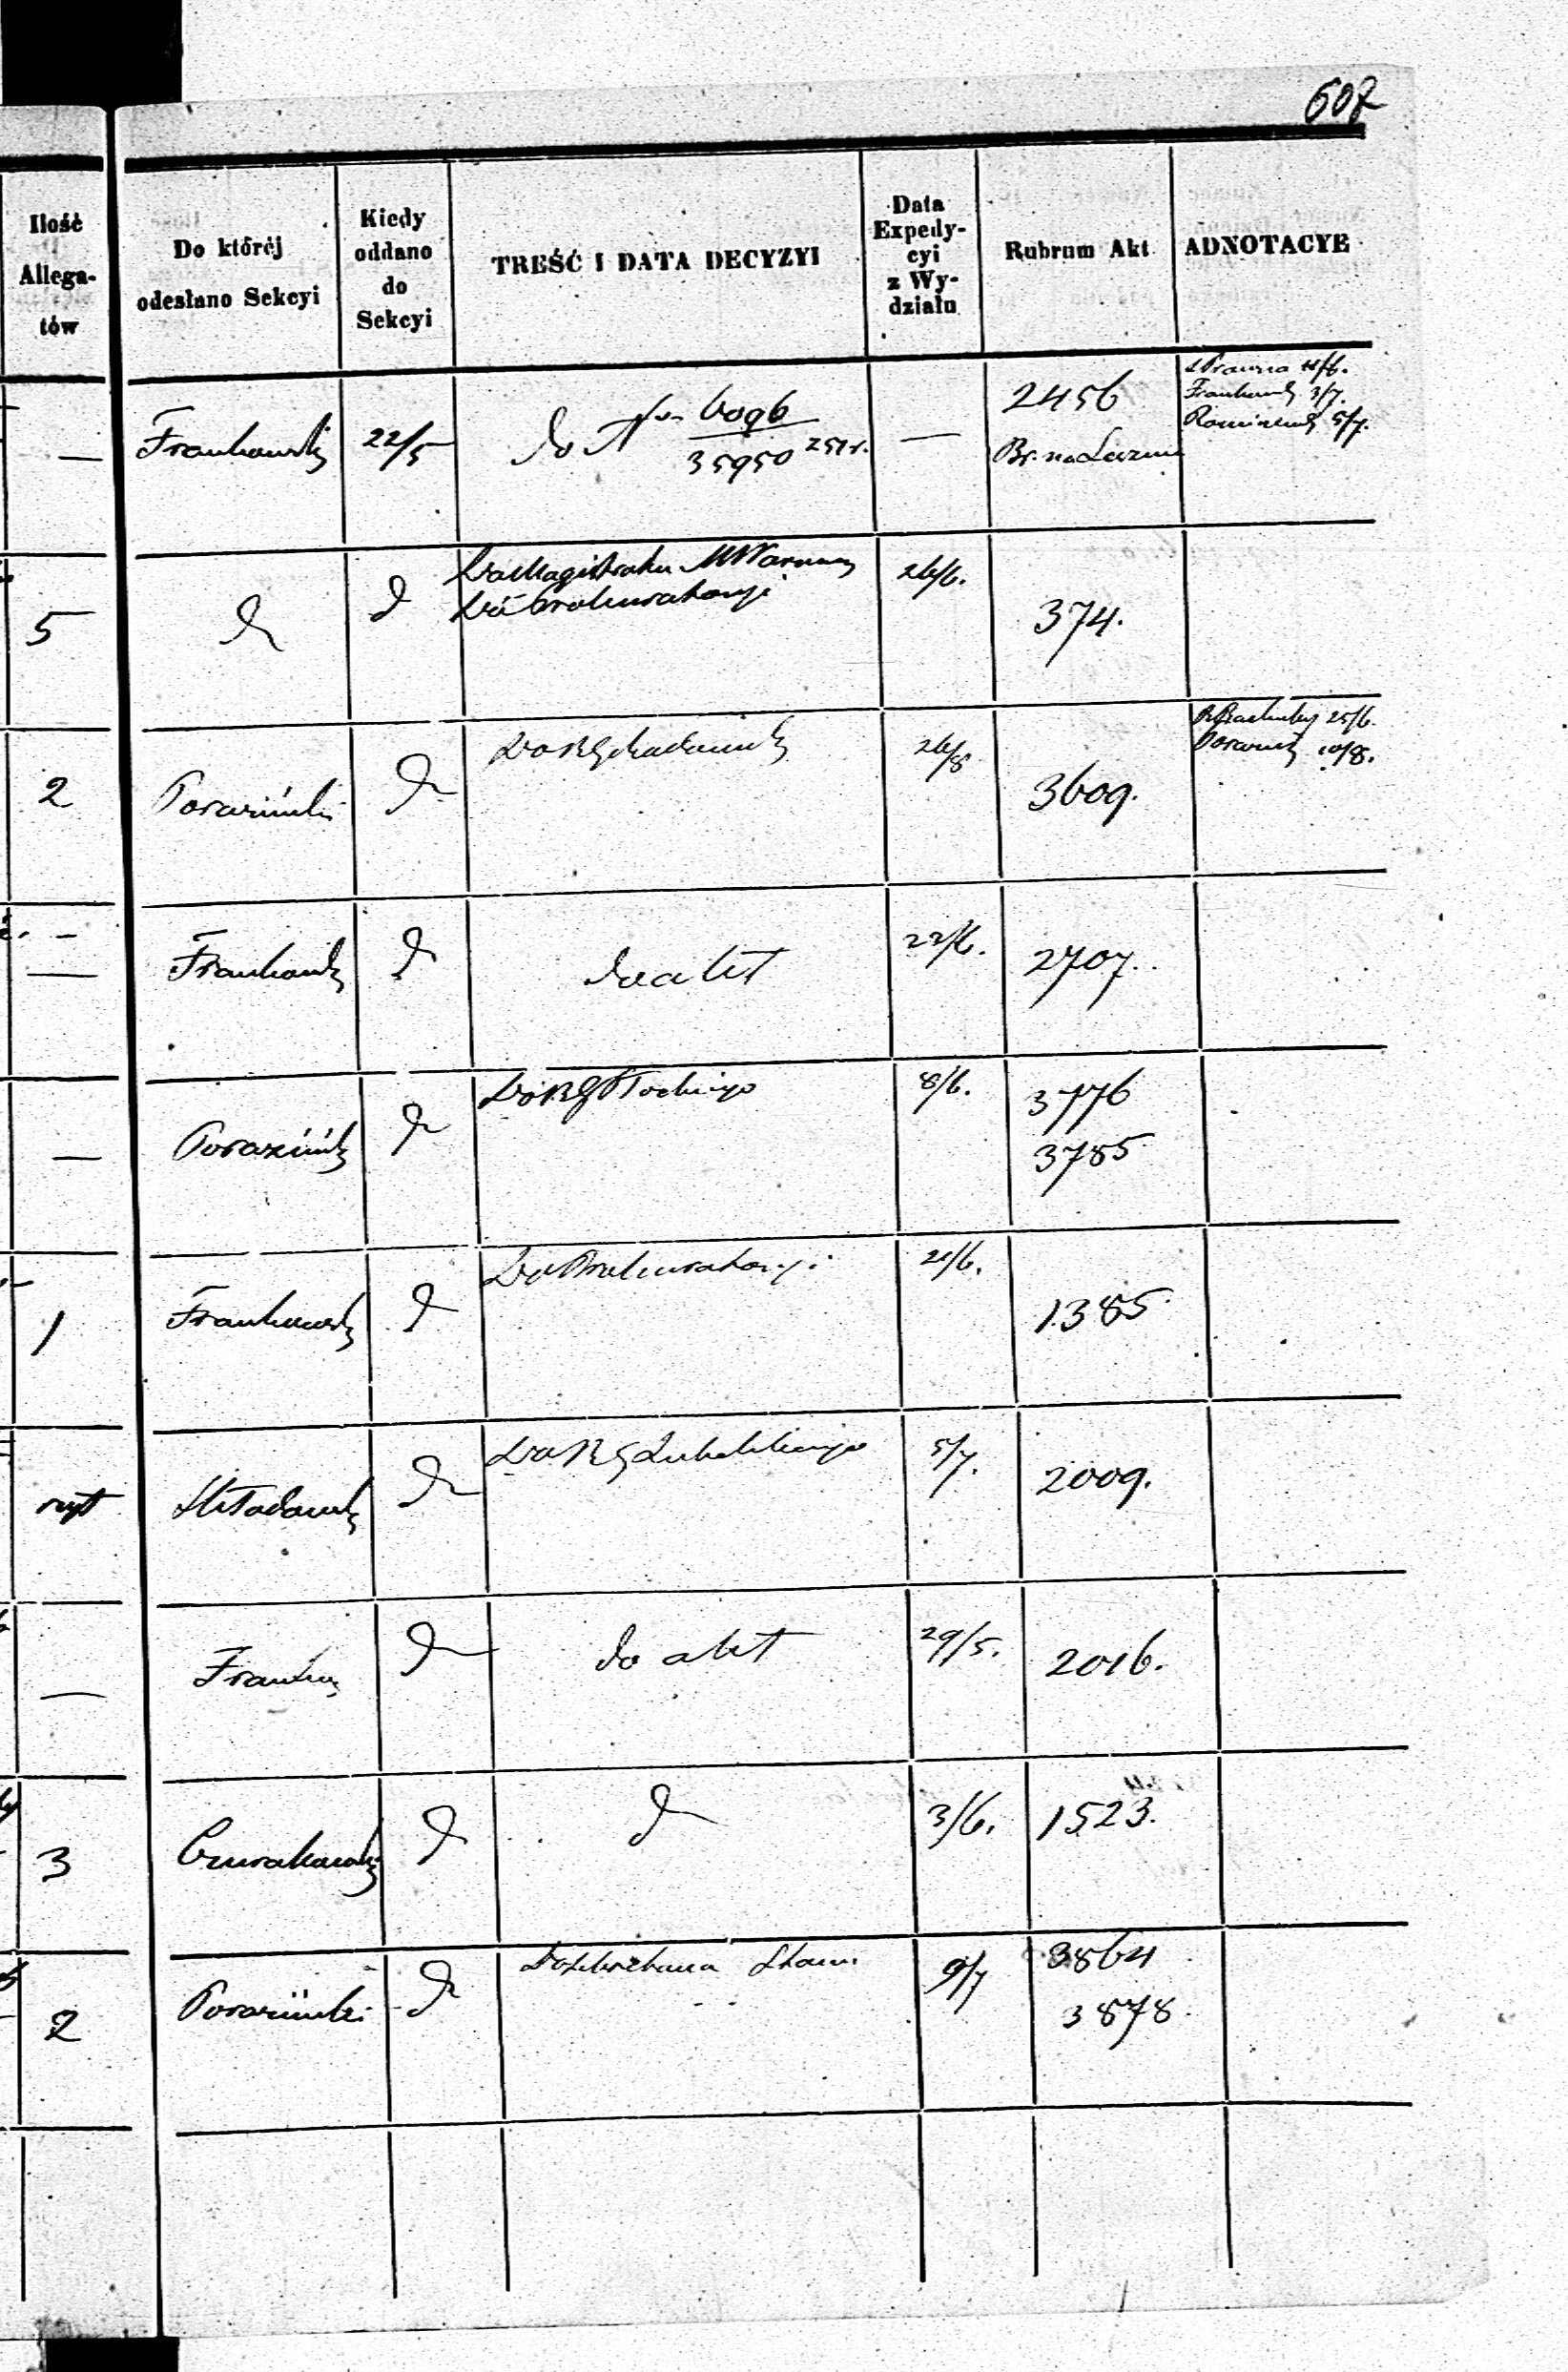 607
Ilość Allega- tów
Do którėj odesłano Sekcyi
Kiedy oddano do Sekcyi
TREŚĆ I DATA DECYZYI
Data Expedy- cyi z Wy- działu
Rubrum Akt
ADNOTACYE
— Frankowski 22/5 do Nru 6096 / 35950 251r. — 2456
Br. na
Frankowski 3/7.
5 d d Do Magistratu M Warszawy 26/6. 374.
Do Prokuratoryi
2 Poraziński d Do RG Radomsk 26/8 3609.
25/6.
Porazińsk 10/8.
— Frankowsk d do akt 22/6. 2707.
— Poraziński d Do RG Płockiego 8/6. 3776
3785
1 Frankowsk d Do Prokuratoryi 21/6. 1385
szyt Składowsk d Do RG Lubelskiego 5/7. 2009.
— Frankow d do akt 29/5. 2016.
3 d d 3/6. 1523.
2 Poraziński d 9/7 3864
3878.